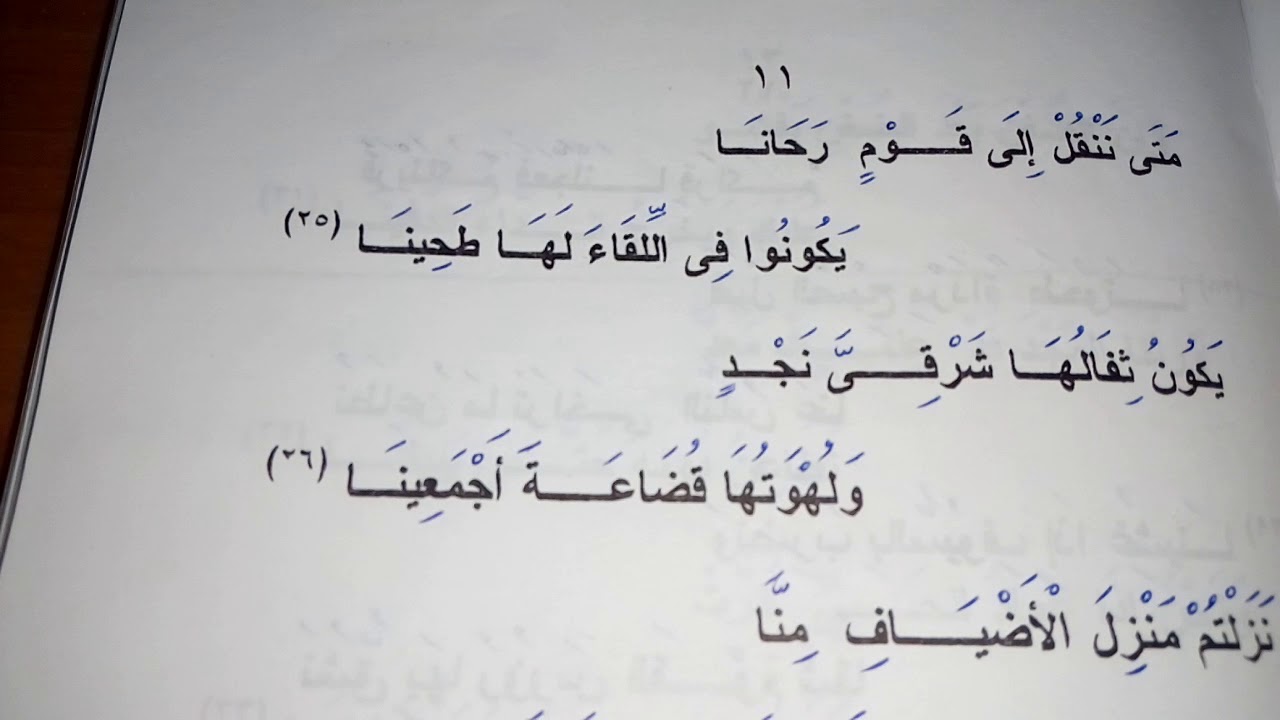 ١١
مَتَى نَنْقُلْ إِلَى قَـــوْمٍ رَحَانَـــا
يَكُونُوا فِى اللِّقَاءَ لَهَـا طَحِينَـــا (٢٥)
يَكُونُ ثِفَالُهَـــا شَرْقِـــىَّ نَجْـدٍ
وَلُهْوَتُهَا قُضَاعَـــةَ أَجْمَعِينَـــا (٢٦)
نَزَلْتُمْ مَنْزِلَ الْأَضْيَـــافِ مِنَّا